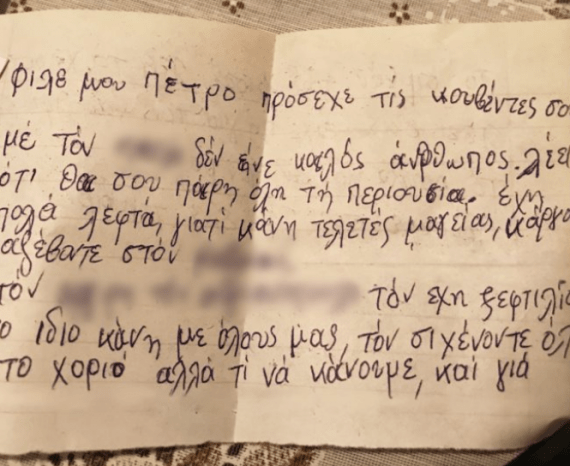 φιλέ μου πέτρο πρόσεχε τίς κουβέντες σο
μέ τόν δέν είνε καλός άνθρωπος. λέει
ότι θα σου πάρη όλη τή περιουσία. έχη
πολά λεφτά, γιατί κάνη τελετές μαγείας,
στόν
τόν τόν έχη ξεφτιλί
ο ίδιο κάνη με όλους μας, τόν σιχένοντε όλ
το χοριό αλλά τί νά κάνουμε, και γιά